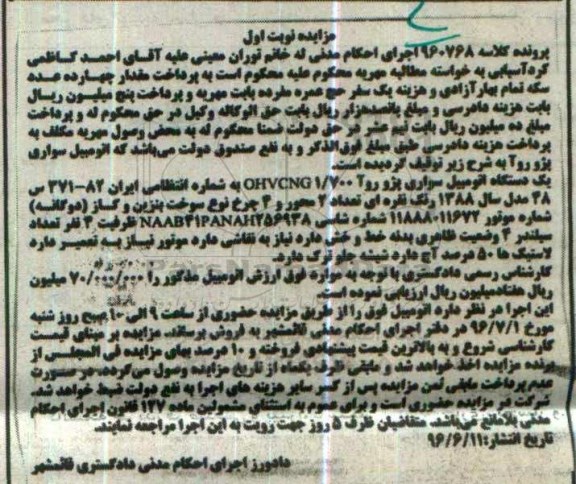 مزایده نوبت اول
پرونده کلاسه ۹۶۰۷۶۸ اجرای احکام مدنی له خانم توران معینی علیه آقای احمد کاظمی
گردآسیابی به خواسته مطالبه مهریه محکوم علیه محکوم است به پرداخت مقدار چهارده عدد
سکه تمام بهار آزادی و هزینه یک سفر حج عمره مفرده بابت مهریه و پرداخت پنج میلیون ریال
بابت هزینه دادرسی و مبلغ پانصدهزار ریال بابت حق الوکاله وکیل در حق محکوم له و پرداخت
مبلغ ده میلیون ریال بابت نیم عشر در حق دولت ضمنا محکوم له به محض وصول مهریه مکلف به
پرداخت هزینه دادرسی طبق مبلغ فوق الذکر و به نفع صندوق دولت می‌باشد که اتومبیل سواری
پژو روآ به شرح زیر توقیف گردیده است.
یک دستگاه اتومبیل سواری پژو روآ OHVCNG ۱/۷۰۰ به شماره انتظامی ایران ۸۲-۳۷۱ س
۳۸ مدل سال ۱۳۸۸ رنگ نقره ای تعداد ۲ محور و ۴ چرخ نوع سوخت بنزین و گاز (دوگانه)
شماره موتور ۱۱۸۸۸۰۱۱۶۷۲ شماره شاسی NAAB۴۱PANAH۲۵۶۹۳۸ ظرفیت ۴ نفر تعداد
سیلندر ۴ وضعیت ظاهری بدنه خط و خش دارد نیاز به نقاشی دارد موتور نیاز به تعمیر دارد
لاستیک ها ۵۰ درصد آج دارد شیشه جلو ترک دارد.
کارشناس رسمی دادگستری با توجه به موارد فوق ارزش اتومبیل مذکور را ۷۰/۰۰۰/۰۰۰ میلیون
ریال هفتاد میلیون ریال ارزیابی نموده است
این اجرا در نظر دارد اتومبیل فوق را از طریق مزایده حضوری از ساعت ۹ الی ۱۰ صبح روز شنبه
مورخ ۹۶/۷/۱ در دفتر اجرای احکام مدنی قائمشهر به فروش برساند. مزایده بر مبنای قیمت
کارشناسی شروع و به بالاترین قیمت پیشنهادی فروخته و ۱۰ درصد بهای مزایده فی المجلس از
برنده مزایده اخذ خواهد شد و مابقی ظرف یکماه از تاریخ مزایده وصول می‌گردد. در صورت
عدم پرداخت مابقی ثمن مزایده پس از کسر سایر هزینه های اجرا به نفع دولت ضبط خواهد شد.
شرکت در مزایده حضوری است و برای عموم به استثنای مسئولین ماده ۱۲۷ قانون اجرای احکام
مدنی بلامانع می‌باشد. متقاضیان ظرف ۵ روز جهت رویت به این اجرا مراجعه نمایند.
تاریخ انتشار: ۹۶/۶/۱۱
دادورز اجرای احکام مدنی دادگستری قائمشهر